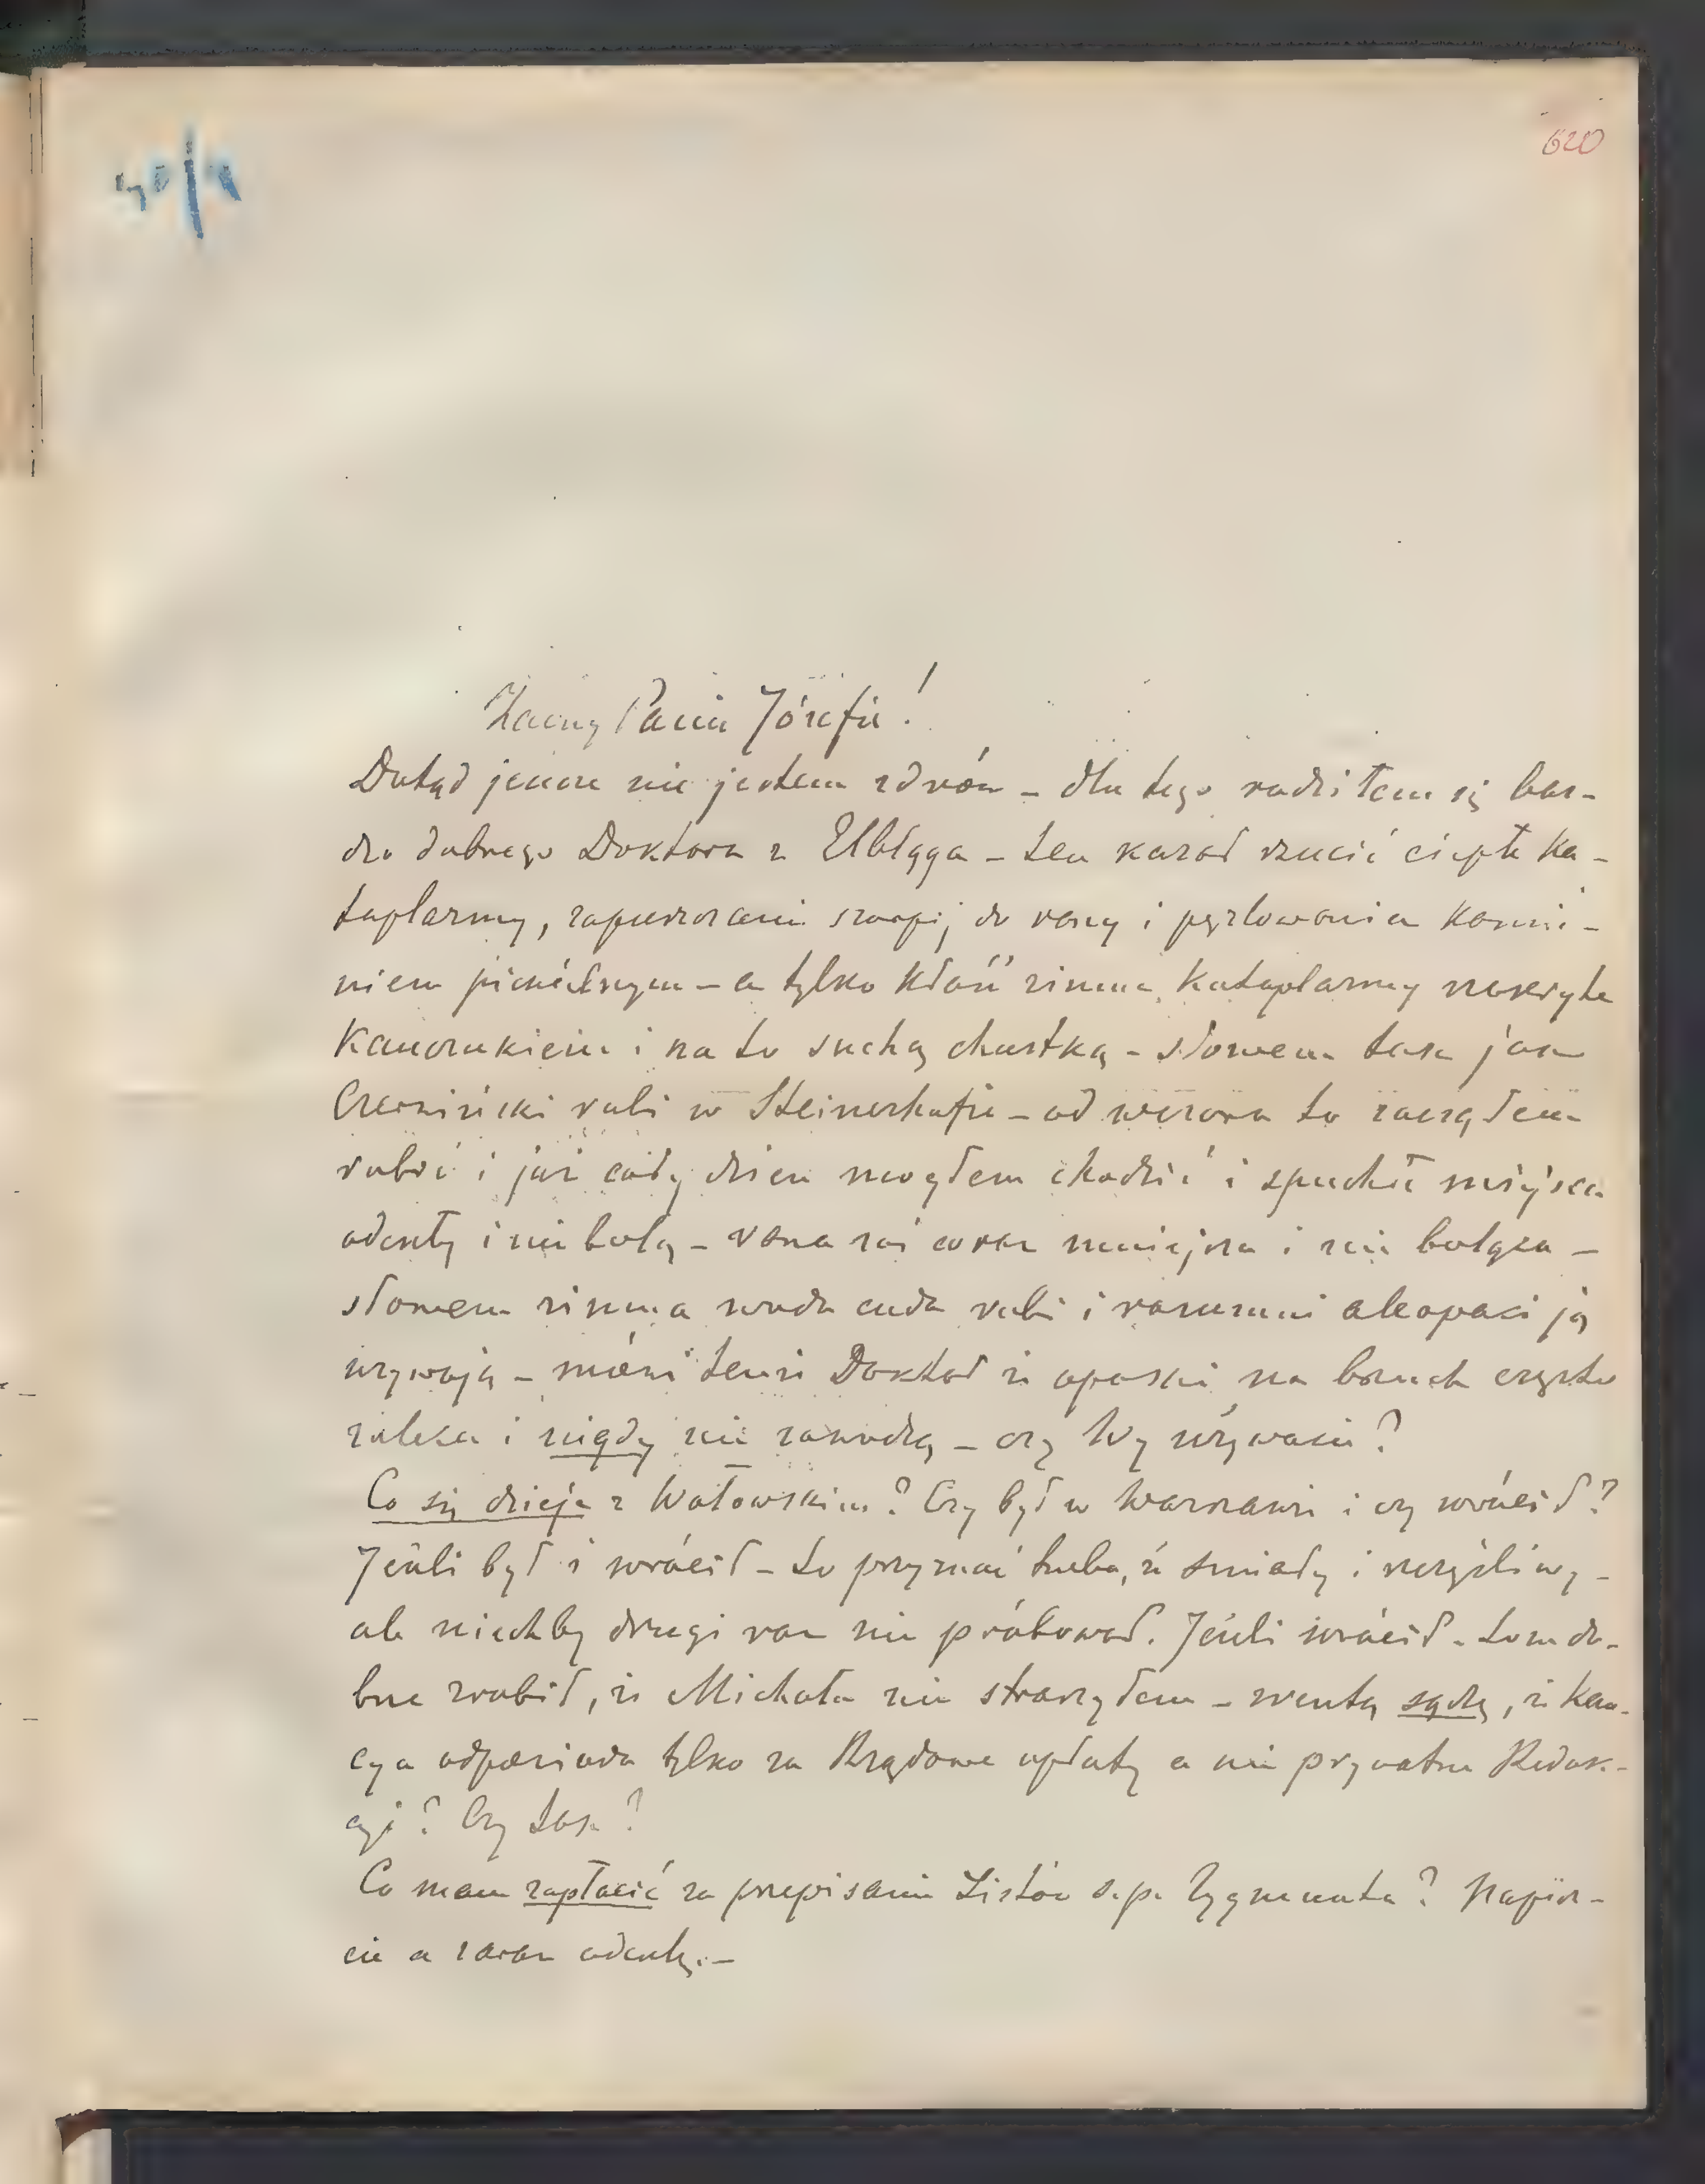 620
Zacny Panie Józefie!
Dotąd jeszcze nie jestem zdrów – dla tego radziłem się bar-
dzo dobrego Doktora z Elbląga – ten kazał rzucić ciepłe ka-
taplazmy, zapuszczanie szarpij do rany i pęzlowania kamie-
niem piekielnym – a tylko kłaść zimne kataplazmy nakryte
Kauczukiem i na to suchą chustką – słowem tak jak
Czerwiński robi w Steinerhofie – od wczora to zacząłem
robić i już cały dzień mogłem chodzić i spuchłe miejsca
odeszły i nie bolą – rana zaś coraz mniejsza i nie boląca –
słowem zimna woda cuda robi i rozumni aleopaci ją
używają – mówi tenże Doktor że opaski na brzuch często
zaleca i nigdy nie zawodzą – czy Wy używacie?
Co się dzieje z Wołowskim? Czy był w Warszawie i czy wrócił?
Jeśli był i wrócił – to przyznać trzeba, że śmiały i szczęśliwy –
ale niechby drugi raz nie próbował. Jeśli wrócił – tom do-
brze zrobił, że Michała nie straszyłem – zresztą sądzę, że Kau-
cya odpowiada tylko za Rządowe opłaty a nie prywatne Redak-
cyi? Czy tak?
Co mam zapłacić za przepisanie Listów ś.p. Zygmunta? Napisz-
cie a zaraz odeszlę. –